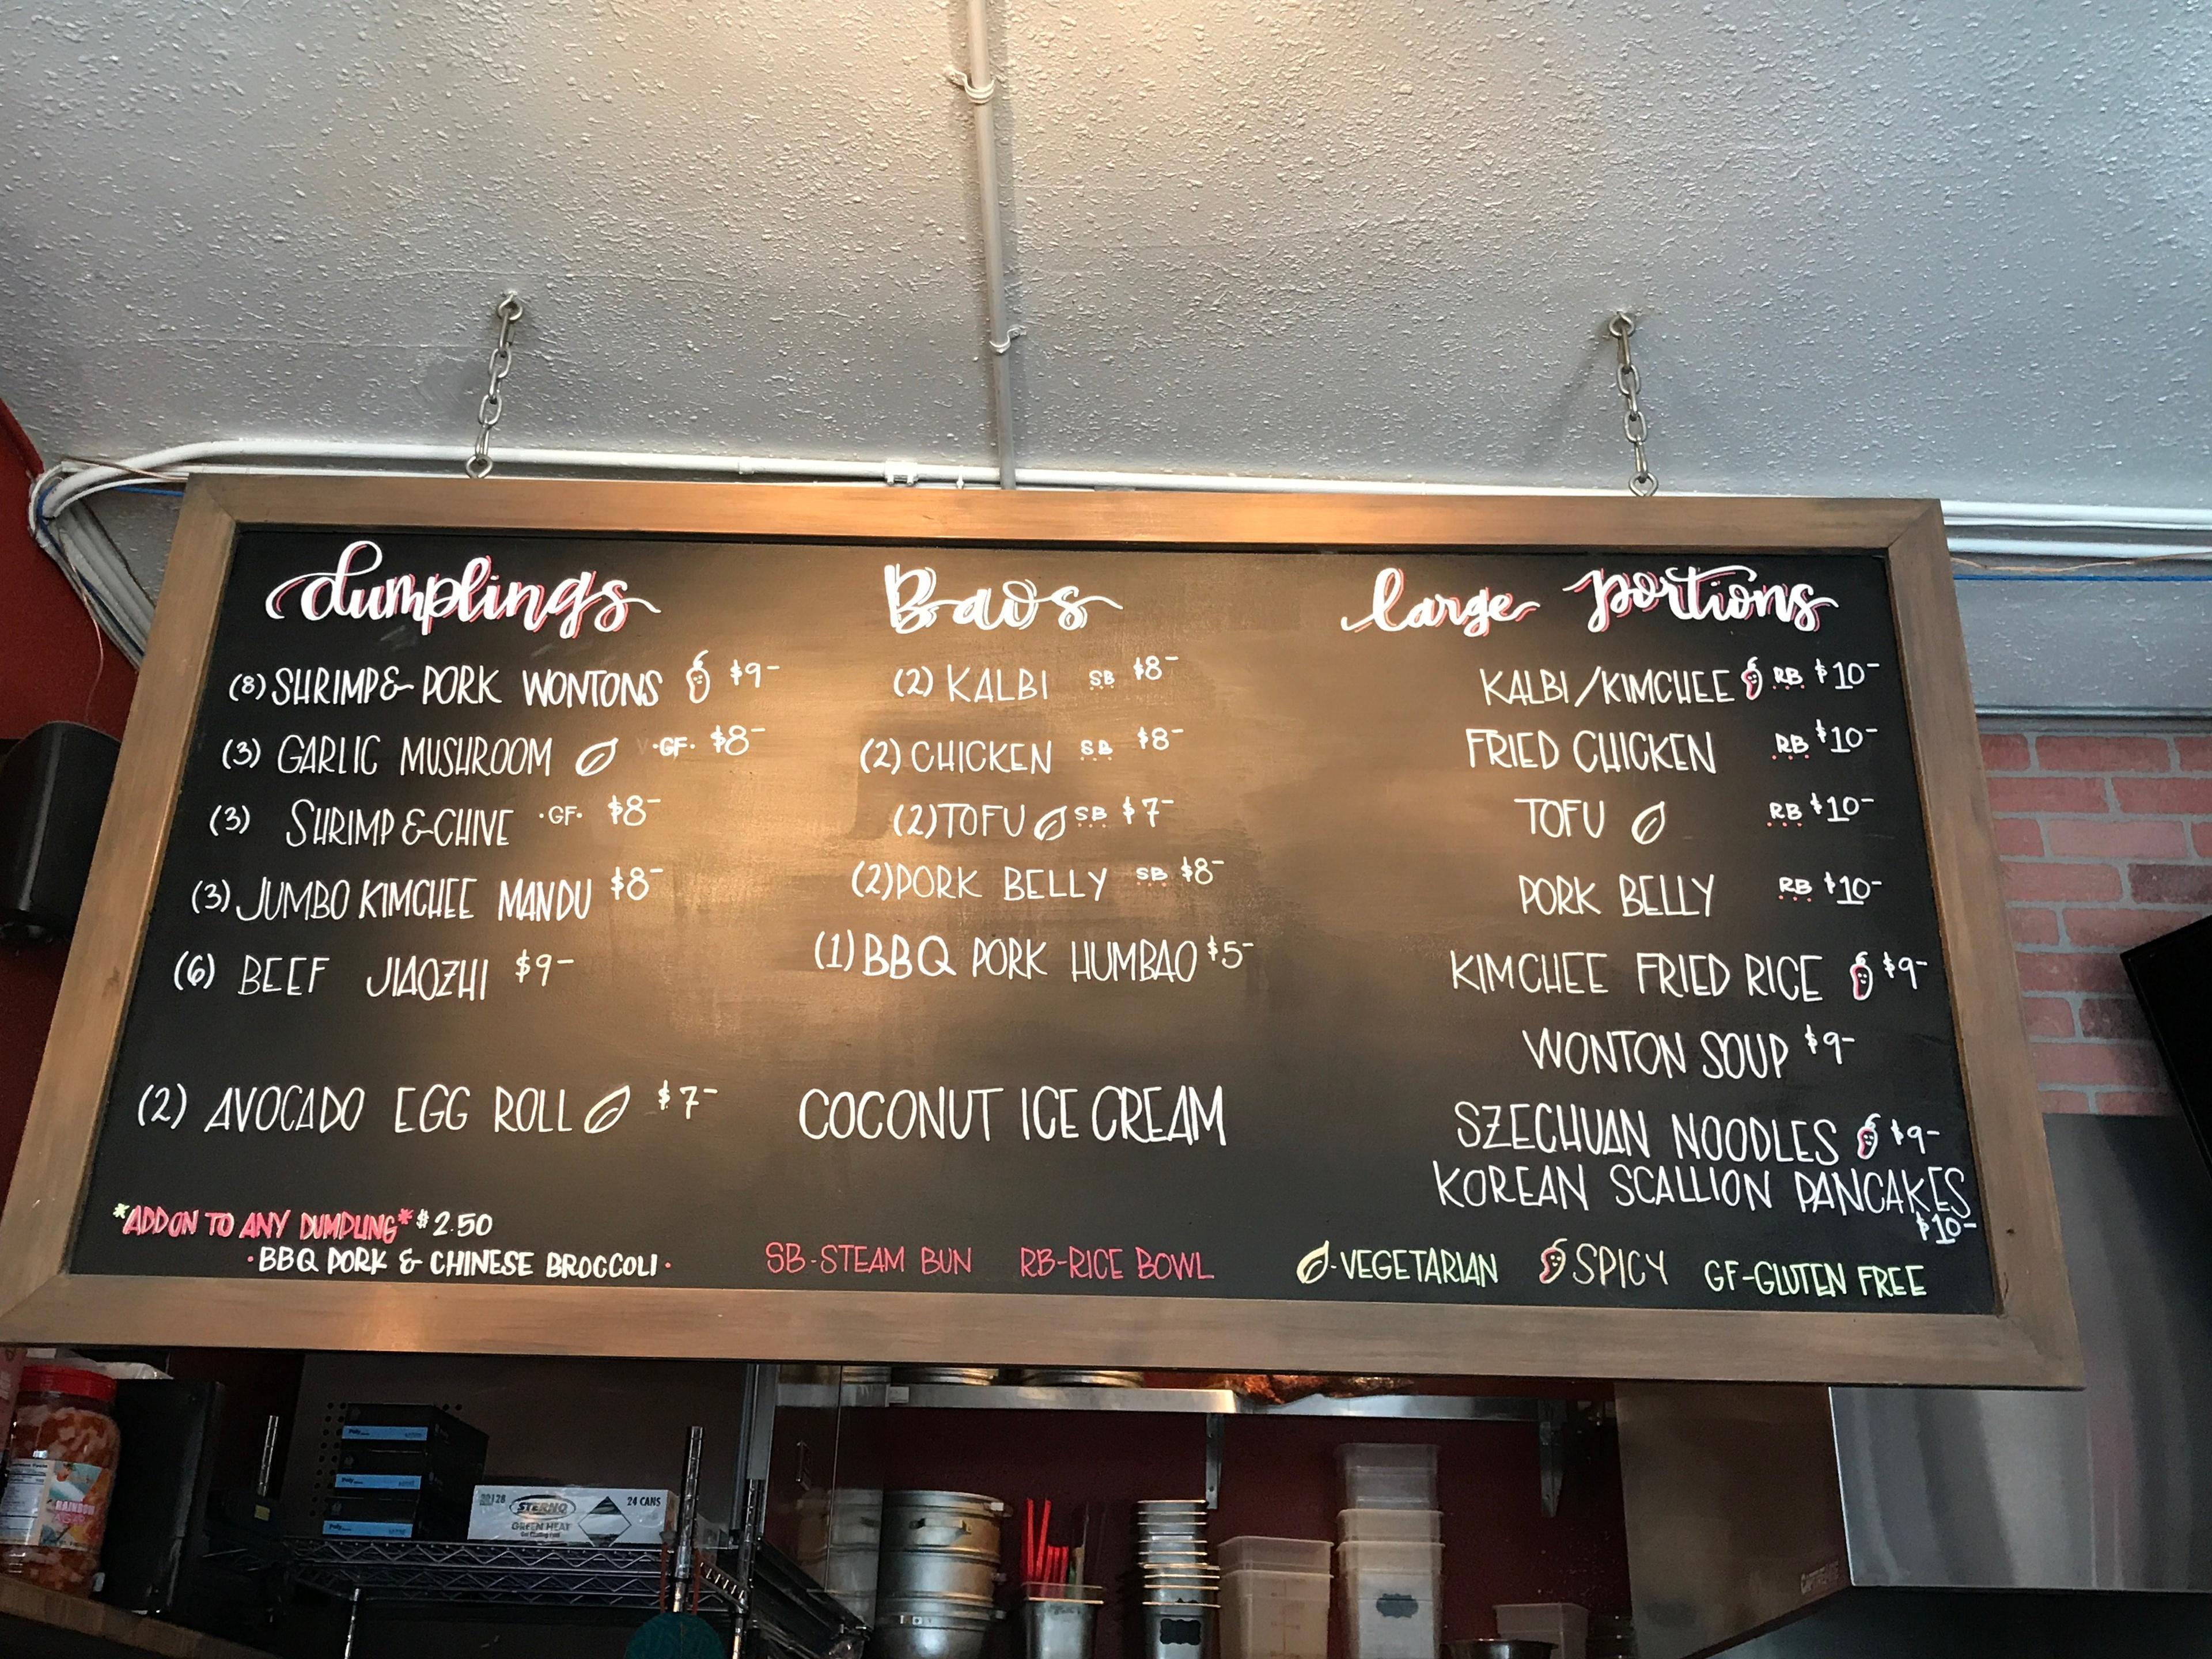 dumplings
(8) SHRIMP & PORK WONTONS $9-
(3) GARLIC MUSHROOM V ·GF· $8-
(3) SHRIMP & CHIVE ·GF· $8-
(3) JUMBO KIMCHEE MANDU $8-
(6) BEEF JIAOZHI $9-
(2) AVOCADO EGG ROLL $7-
*ADD ON TO ANY DUMPLING* $2.50
·BBQ PORK & CHINESE BROCCOLI·
Baos
(2) KALBI SB $8-
(2) CHICKEN SB $8-
(2) TOFU SB $7-
(2) PORK BELLY SB $8-
(1) BBQ PORK HUMBAO $5-
COCONUT ICE CREAM
large portions
KALBI/KIMCHEE RB $10-
FRIED CHICKEN RB $10-
TOFU RB $10-
PORK BELLY RB $10-
KIMCHEE FRIED RICE $9-
WONTON SOUP $9-
SZECHUAN NOODLES $9-
KOREAN SCALLION PANCAKES
$10-
SB-STEAM BUN RB-RICE BOWL -VEGETARIAN SPICY GF-GLUTEN FREE
STERNO
GREEN HEAT
24 CANS
RAINBOW